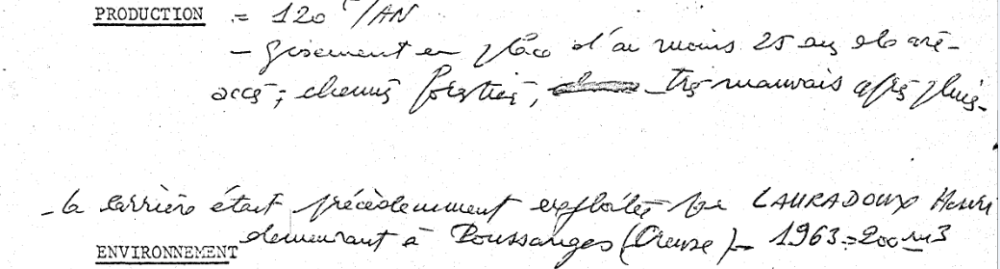 PRODUCTION = 120 T/AN
- gisement en place d'au moins 25 ans
accès; chemins forestiers, très mauvais après pluies-
- la carrière était précédemment exploitée par LAURADOUX Henri
demeurant à Poussanges (Creuse) - 1963 = 200 m3
ENVIRONNEMENT